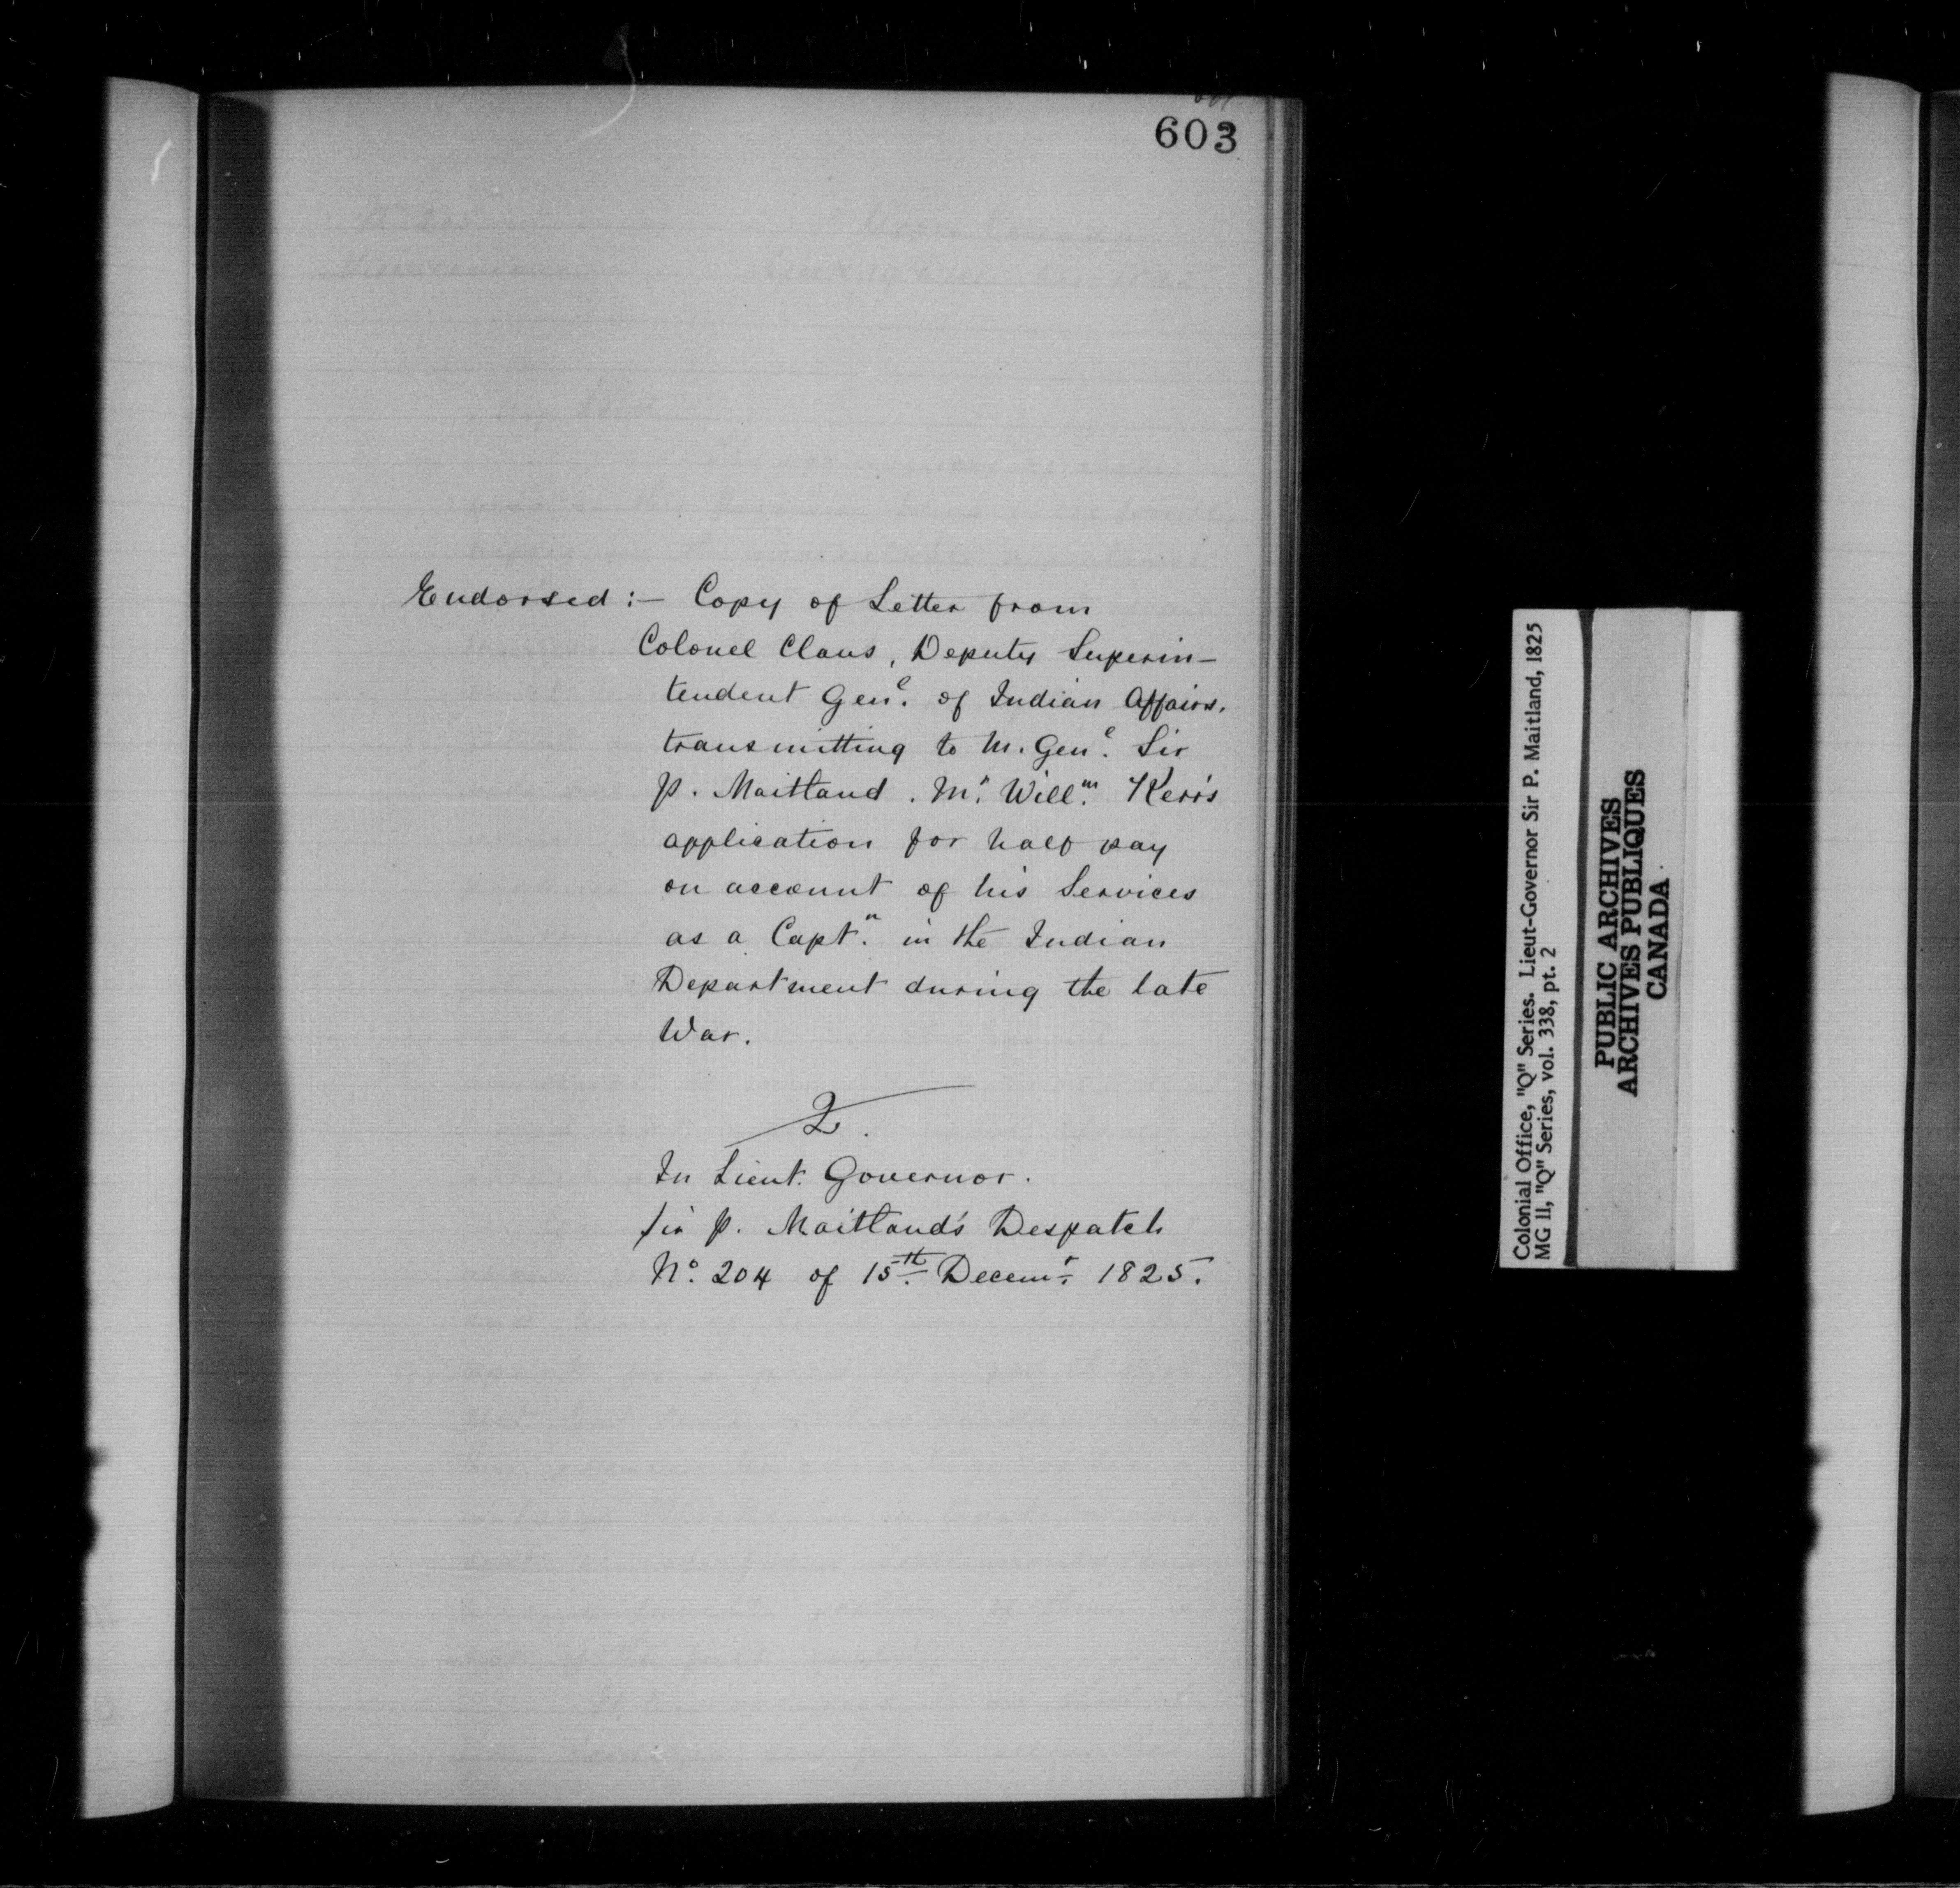 603
Endorsed :— Copy of Letter from
Colonel Claus, Deputy Superin-
tendent Genl. of Indian Affairs.
transmitting to M. Genl. Sir
P. Maitland. Mr. Willm. Kerr's
application for half pay
on account of his Services
as a Captn. in the Indian
Department during the late
War.
2.
In Lieut. Governor.
Sir P. Maitland's Despatch
No. 204 of 15th. Decemr. 1825.
Colonial Office, "Q" Series. Lieut-Governor Sir P. Maitland, 1825
MG 11, "Q" Series, vol. 338, pt. 2
PUBLIC ARCHIVES
ARCHIVES PUBLIQUES
CANADA